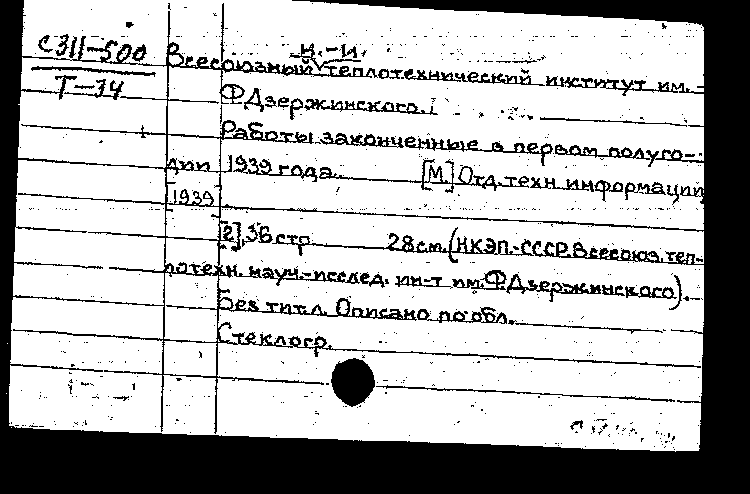 С311-500
Т-34
н.-и.
Всесоюзный теплотехнический институт им.
Ф.Дзержинского.
Работы законченные в первом полуго-
дии 1939 года. [М.] Отд. техн. информации
[1939].
[2], 36 стр. 28 см. (НКЭП.-СССР. Всесоюз. теп-
лотехн. науч.-исслед. ин-т им. Ф.Дзержинского).
Без титл. Описано по обл.
Стеклогр.